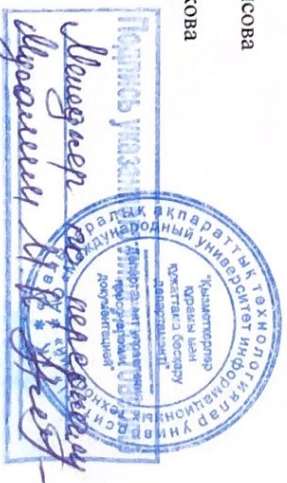 сова
кова
Подпись указан
Менеджер по персоналу
ралық ақпараттық технологиялар универ
международный университет информационных
"Қызметкерлер
құрамы мен
құжаттама басқару
департаменті"
"Департамент управления
персоналом и
документацией"